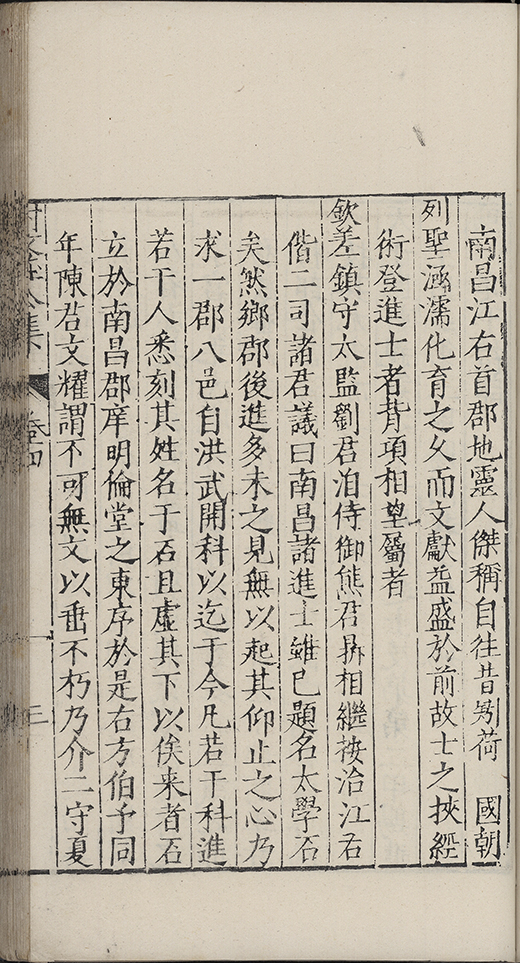 南昌江右首郡地靈人傑稱自往昔矧荷　國朝
列聖涵濡化育之久而文獻益盛於前故士之挾經
術登進士者背項相望屬者
欽差鎮守太監劉君洎侍御熊君昇相繼按治江右
偕二司諸君議曰南昌諸進士雖已題名太學石
矣然鄉郡後進多未之見無以起其仰止之心乃
求一郡八邑自洪武開科以迄于今凡若干科進
若干人悉刻其姓名于石且虛其下以俟来者石
立於南昌郡庠明倫堂之東序於是右方伯予同
年陳君文耀謂不可無文以垂不朽乃介二守夏
集　卷四　三